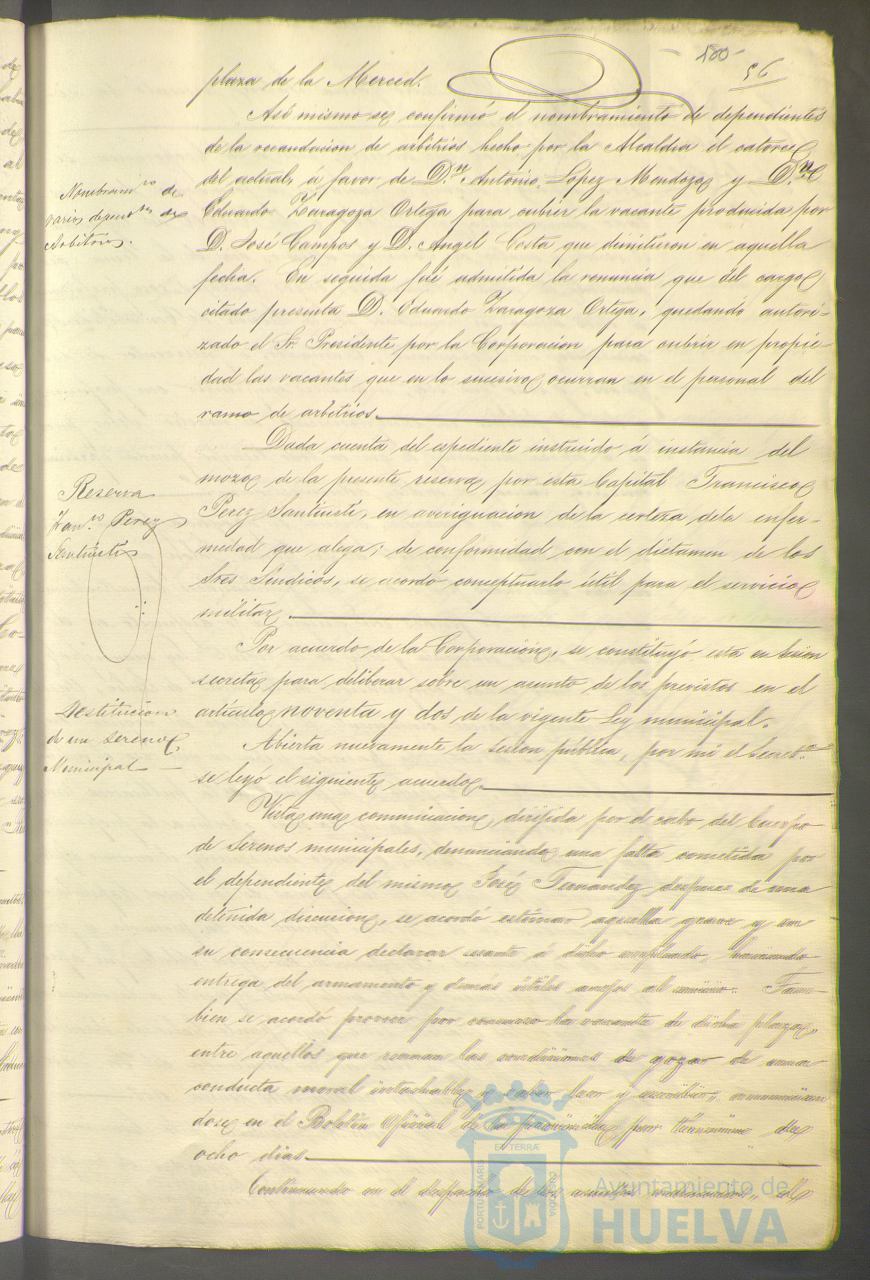 100
96
plaza de la Merced.
Asi mismo se confirmó el nombramiento de dependientes
de la recaudacion de arbitrios hecho por la Alcaldia el catorce
del actual, a favor de D.n Antonio Lopez Mendoza y D.n
Eduardo Zaragoza Ortega para cubrir la vacante producida por
D. José Campos y D. Angel Costa que dimitieron en aquella
fecha. En seguida fué admitida la renuncia que del cargo
citado presenta D. Eduardo Zaragoza Ortega, quedando autori-
zado el Sr Presidente por la Corporacion para cubrir en propie-
dad las vacantes que en lo sucesivo ocurran en el personal del
ramo de arbitrios.
Nombram.to de
varios depend.tes de
Arbitrios.
Dada cuenta del espediente instruido á instancia del
mozo de la presente reserva por esta Capital Francisco
Perez Santiusti, en averiguacion de la certeza dela enfer-
medad que alega; de conformidad con el dictamen de los
Sres Sindicos, se acordó conceptuarlo útil para el servicio
militar.
Reserva
Fran.co Perez
Santiusti
Por acuerdo de la Corporacion, se constituyó esta en sesion
secreta para deliberar sobre un asunto de los previstos en el
artículo noventa y dos de la vigente Ley municipal.
Abierta nuevamente la sesion pública, por mi el Secret.o
se leyó el siguiente acuerdo.
Destitucion
de un sereno
Municipal
Vista una comunicacion dirijida por el cabo del Cuerpo
de Serenos municipales, denunciando una falta cometida por
el dependiente del mismo José Fernandez, despues de una
detenida discusion, se acordó estimar aquella grave y en
su consecuencia declarar cesante á dicho empleado, haciendo
entrega del armamento y demás útiles anejos al mismo. Tam-
bien se acordó proveer por concurso la vacante de dicha plaza,
entre aquellos que reunan las condiciones de gozar de una
conducta moral intachable y saber leer y escribir, anunciandose
dose en el Boletin Oficial de la provincia por término de
ocho dias.
Continuando en el despacho de los asuntos ordinarios, el
PORTUS MARIS
ET TERRÆ
CUSTODIA
Ayuntamiento de
HUELVA